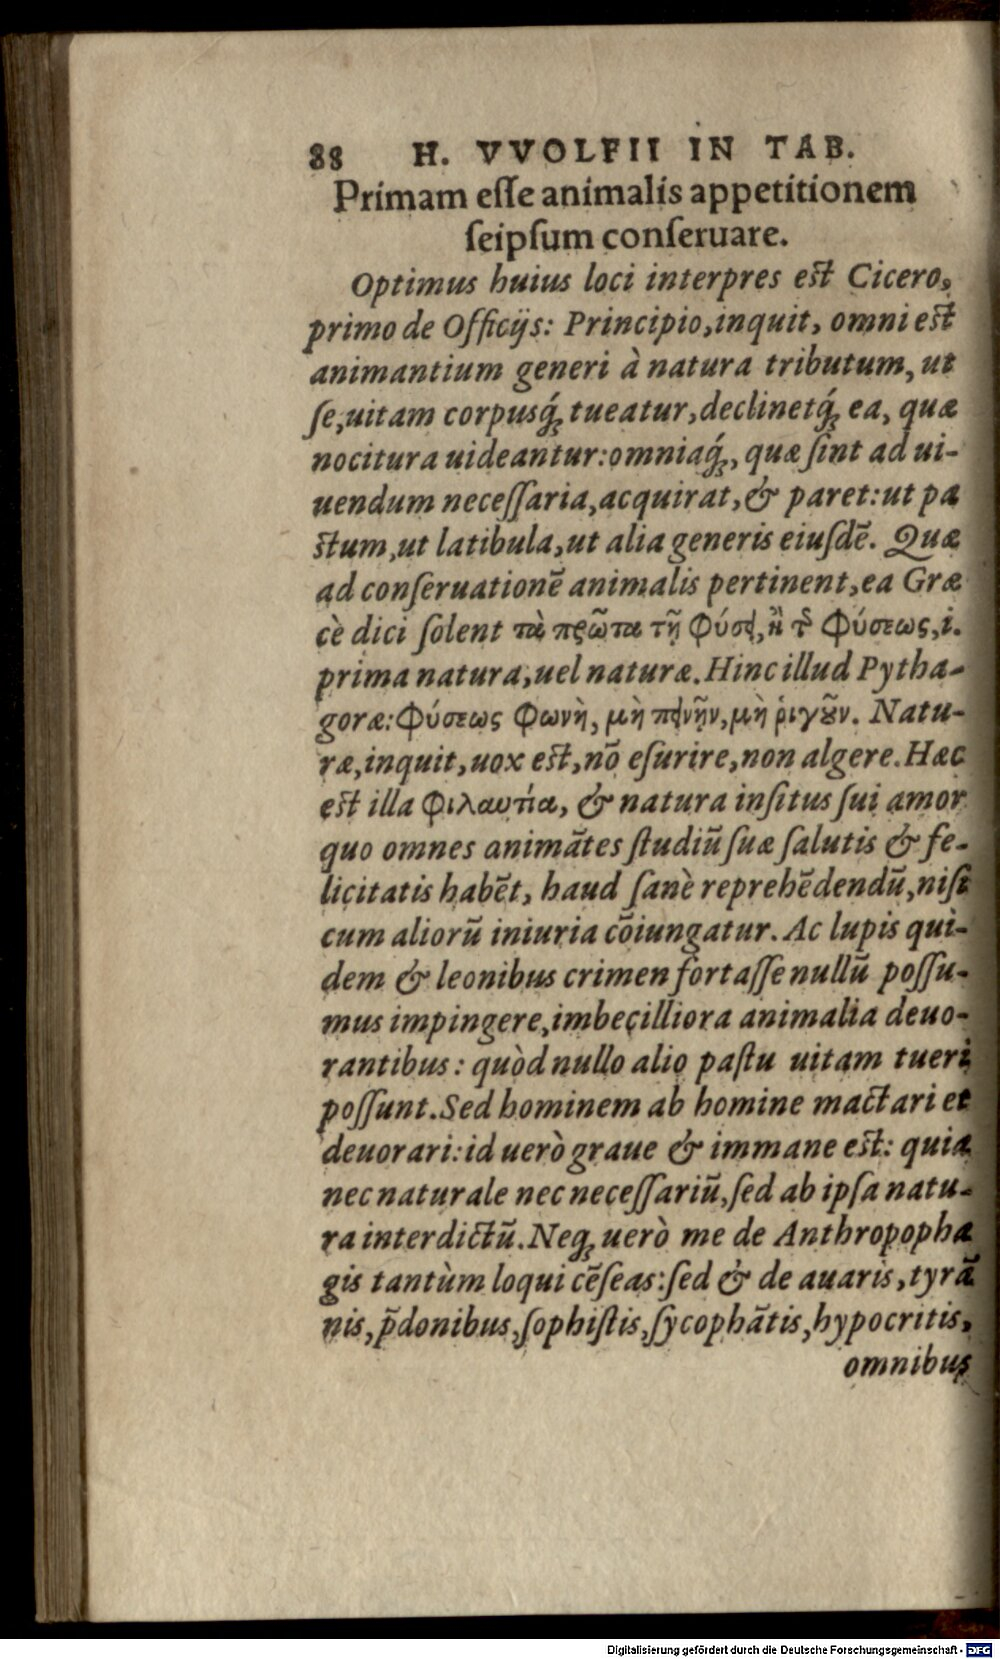 88 H. VVOLFII IN TAB.
Primam eſſe animalis appetitionem
ſeipſum conſeruare.
Optimus huius loci interpres eſt Cicero,
primo de Officijs: Principio, inquit, omni eſt
animantium generi à natura tributum, ut
ſe, uitam corpusq́; tueatur, declinetq́; ea, quæ
nocitura uideantur: omniaq́;, quæ ſint ad ui-
uendum neceſſaria, acquirat, & paret: ut pa
ſtum, ut latibula, ut alia generis eiuſdẽ. Quæ
ad conſeruationẽ animalis pertinent, ea Græ
cè dici ſolent τὰ πρῶτα τῇ φύσει, ἢ τῆς φύσεως, i.
prima natura, uel naturæ. Hinc illud Pytha-
goræ: Φύσεως φωνὴ, μὴ πεινῆν, μὴ ῥιγοῦν. Natu-
ræ, inquit, uox eſt, nõ eſurire, non algere. Hæc
eſt illa φιλαυτία, & natura inſitus ſui amor
quo omnes animãtes ſtudiũ ſuæ ſalutis & fe-
licitatis habẽt, haud ſanè reprehẽdendũ, niſi
cum aliorũ iniuria cõiungatur. Ac lupis qui-
dem & leonibus crimen fortaſſe nullũ poſſu-
mus impingere, imbecilliora animalia deuo-
rantibus: quòd nullo alio paſtu uitam tueri
poſſunt. Sed hominem ab homine mactari et
deuorari: id uerò graue & immane eſt: quia
nec naturale nec neceſſariũ, ſed ab ipſa natu-
ra interdictũ. Neq; uerò me de Anthropopha
gis tantùm loqui cẽſeas: ſed & de auaris, tyrã
nis, p̃donibus, ſophiſtis, ſycophãtis, hypocritis,
omnibus
Digitalisierung gefördert durch die Deutsche Forschungsgemeinschaft - DFG